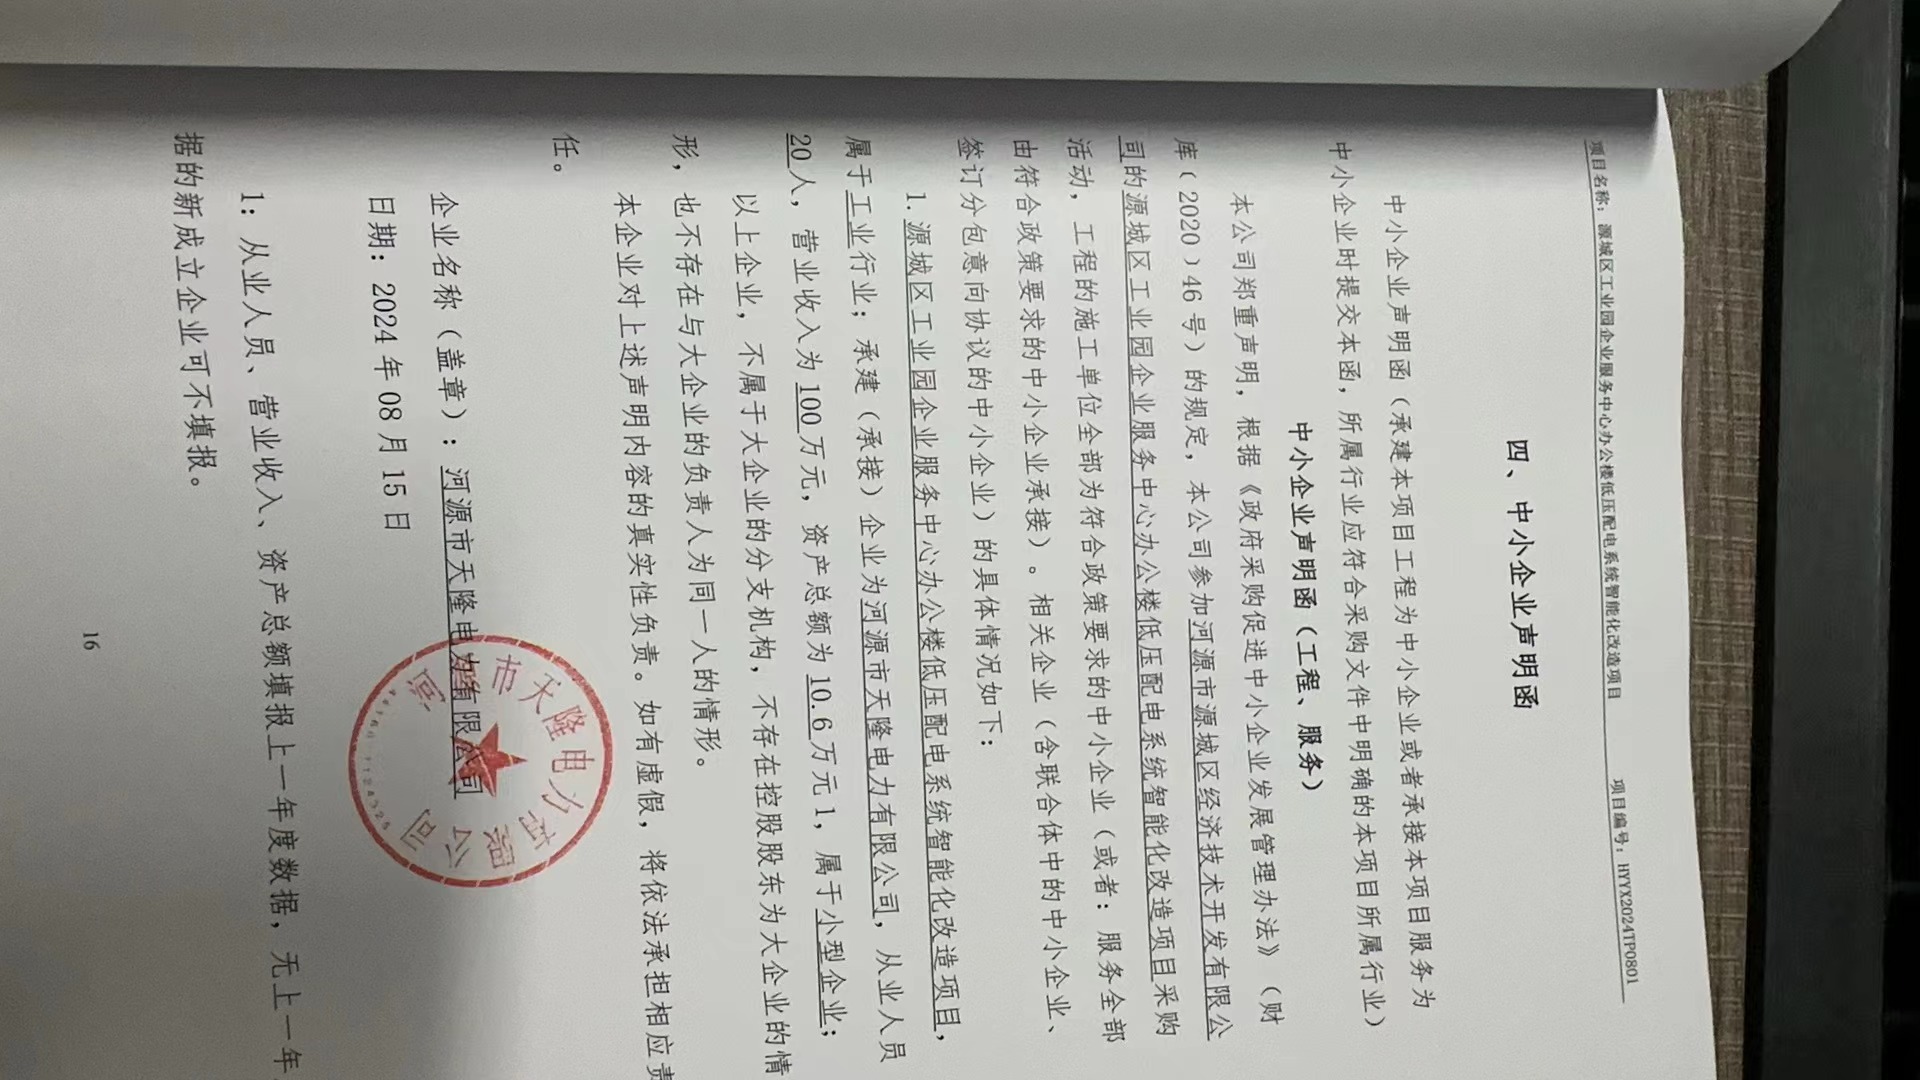 项目名称：源城区工业园企业服务中心办公楼低压配电系统智能化改造项目 项目编号：HYYX2024TP0801
四、中小企业声明函
中小企业声明函（承建本项目工程为中小企业或者承接本项目服务为
中小企业时提交本函，所属行业应符合采购文件中明确的本项目所属行业）
中小企业声明函（工程、服务）
本公司郑重声明，根据《政府采购促进中小企业发展管理办法》（财
库﹝2020﹞46号）的规定，本公司参加河源市源城区经济技术开发有限公
司的源城区工业园企业服务中心办公楼低压配电系统智能化改造项目采购
活动，工程的施工单位全部为符合政策要求的中小企业（或者：服务全部
由符合政策要求的中小企业承接）。相关企业（含联合体中的中小企业、
签订分包意向协议的中小企业）的具体情况如下：
1.源城区工业园企业服务中心办公楼低压配电系统智能化改造项目，
属于工业行业；承建（承接）企业为河源市天隆电力有限公司，从业人员
20人，营业收入为100万元，资产总额为10.6万元1，属于小型企业；
以上企业，不属于大企业的分支机构，不存在控股股东为大企业的情
形，也不存在与大企业的负责人为同一人的情形。
本企业对上述声明内容的真实性负责。如有虚假，将依法承担相应责
任。
企业名称（盖章）：河源市天隆电力有限公司
河 市天隆电力有限公司
日期：2024年08月15日
1：从业人员、营业收入、资产总额填报上一年度数据，无上一年
据的新成立企业可不填报。
16